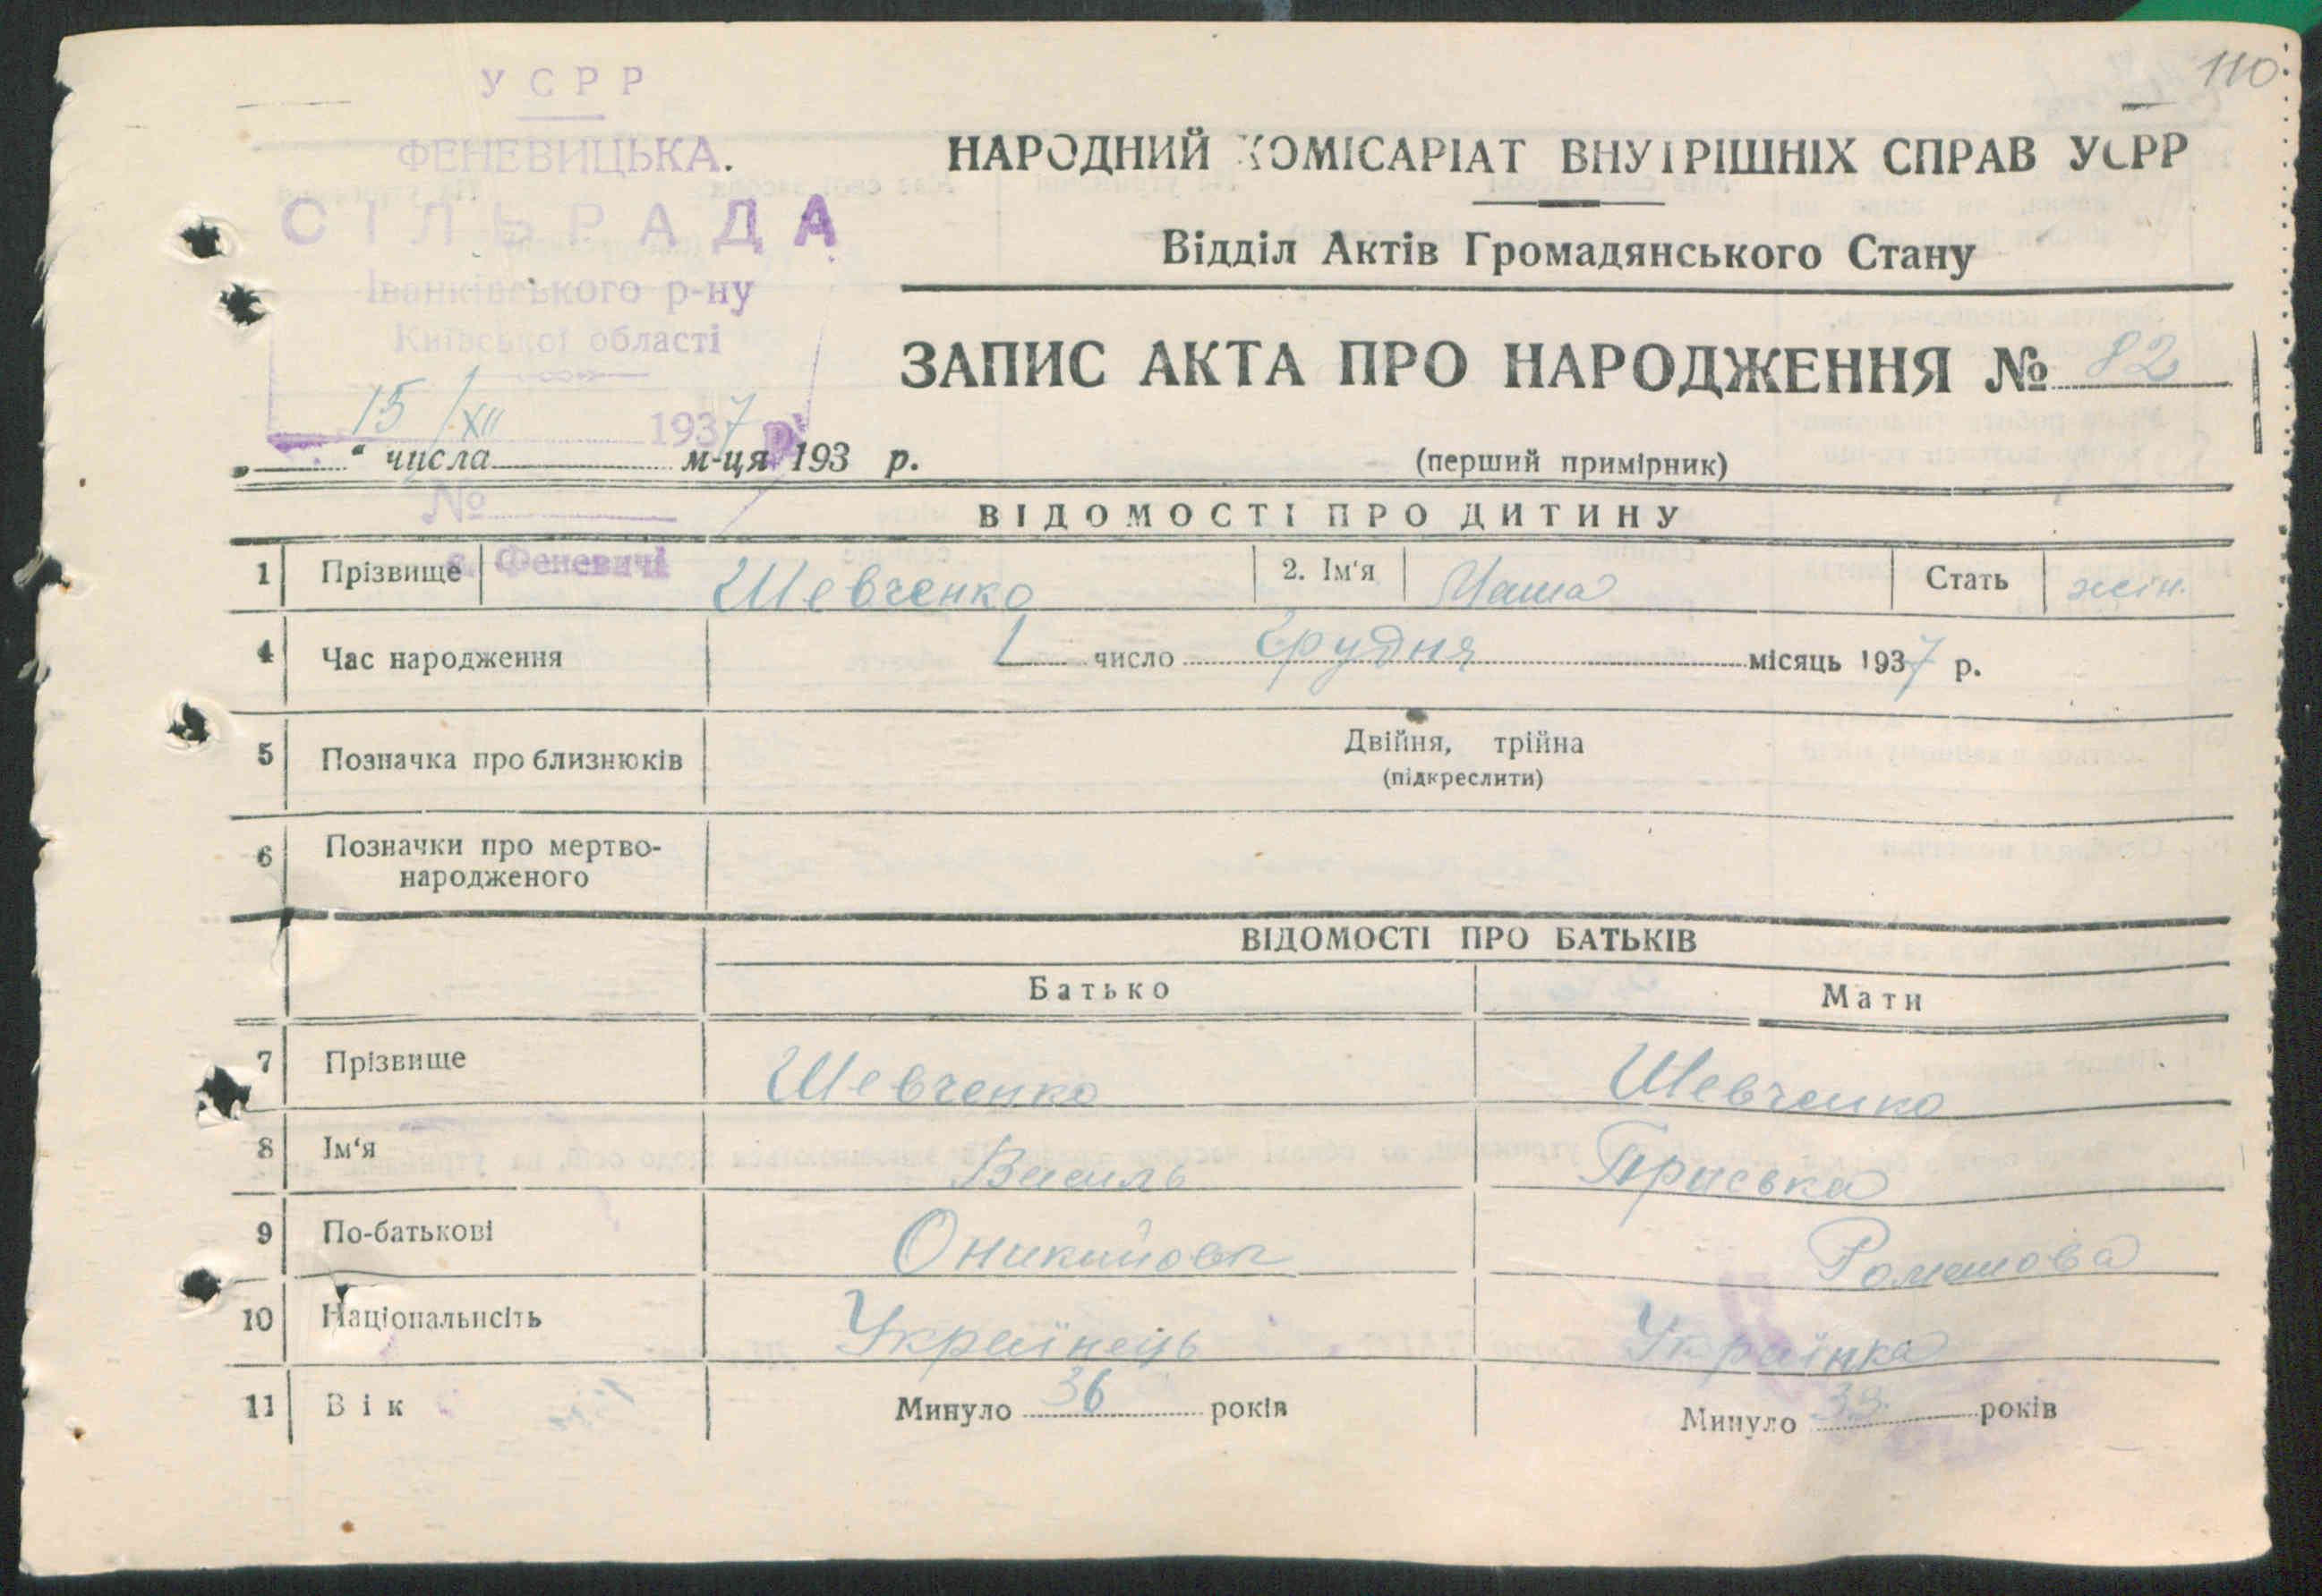 110
УСРР
ФЕНЕВИЦЬКА.
СІЛЬРАДА
Іванківського р-ну
Київської області
15/XII 1937 р.
№
с. Феневичі
НАРОДНИЙ КОМІСАРІАТ ВНУТРІШНІХ СПРАВ УСРР
Відділ Актів Громадянського Стану
ЗАПИС АКТА ПРО НАРОДЖЕННЯ № 82
„ “ числа м-ця 193 р.
(перший примірник)
ВІДОМОСТІ ПРО ДИТИНУ
1 Прізвище Шевченко 2. Ім'я Маша Стать жін.
4 Час народження 1 число Грудня місяць 1937 р.
5 Позначка про близнюків Двійня, трійна
(підкреслити)
6 Позначки про мертво-
народженого
ВІДОМОСТІ ПРО БАТЬКІВ
Батько Мати
7 Прізвище Шевченко Шевченко
8 Ім‘я Василь Приська
9 По-батькові Романова
10 Національнсіть Українець Українка
11 Вік Минуло 36 років Минуло років